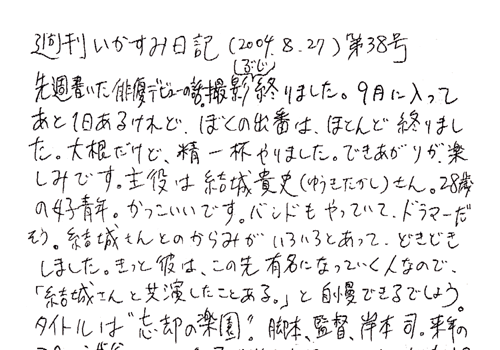 週刊いかすみ日記(2004.8.27)第38号
ぶじ
先週書いた俳優デビューの話。撮影終りました。9月に入って
あと1日あるけれど、ぼくの出番は、ほとんど終りまし
た。大根だけど、精一杯やりました。できあがりが、楽
しみです。主役は結城貴史(ゆうきたかし)さん。28歳
の好青年。かっこいいです。バンドもやっていて、ドラマーだ
そう。結城さんとのからみがいろいろとあって、どきどき
しました。きっと彼は、この先有名になっていく人なので、
「結城さんと共演したことある。」と自慢できるでしょう。
タイトルは"忘却の楽園"?脚本、監督、岸本司。来年の